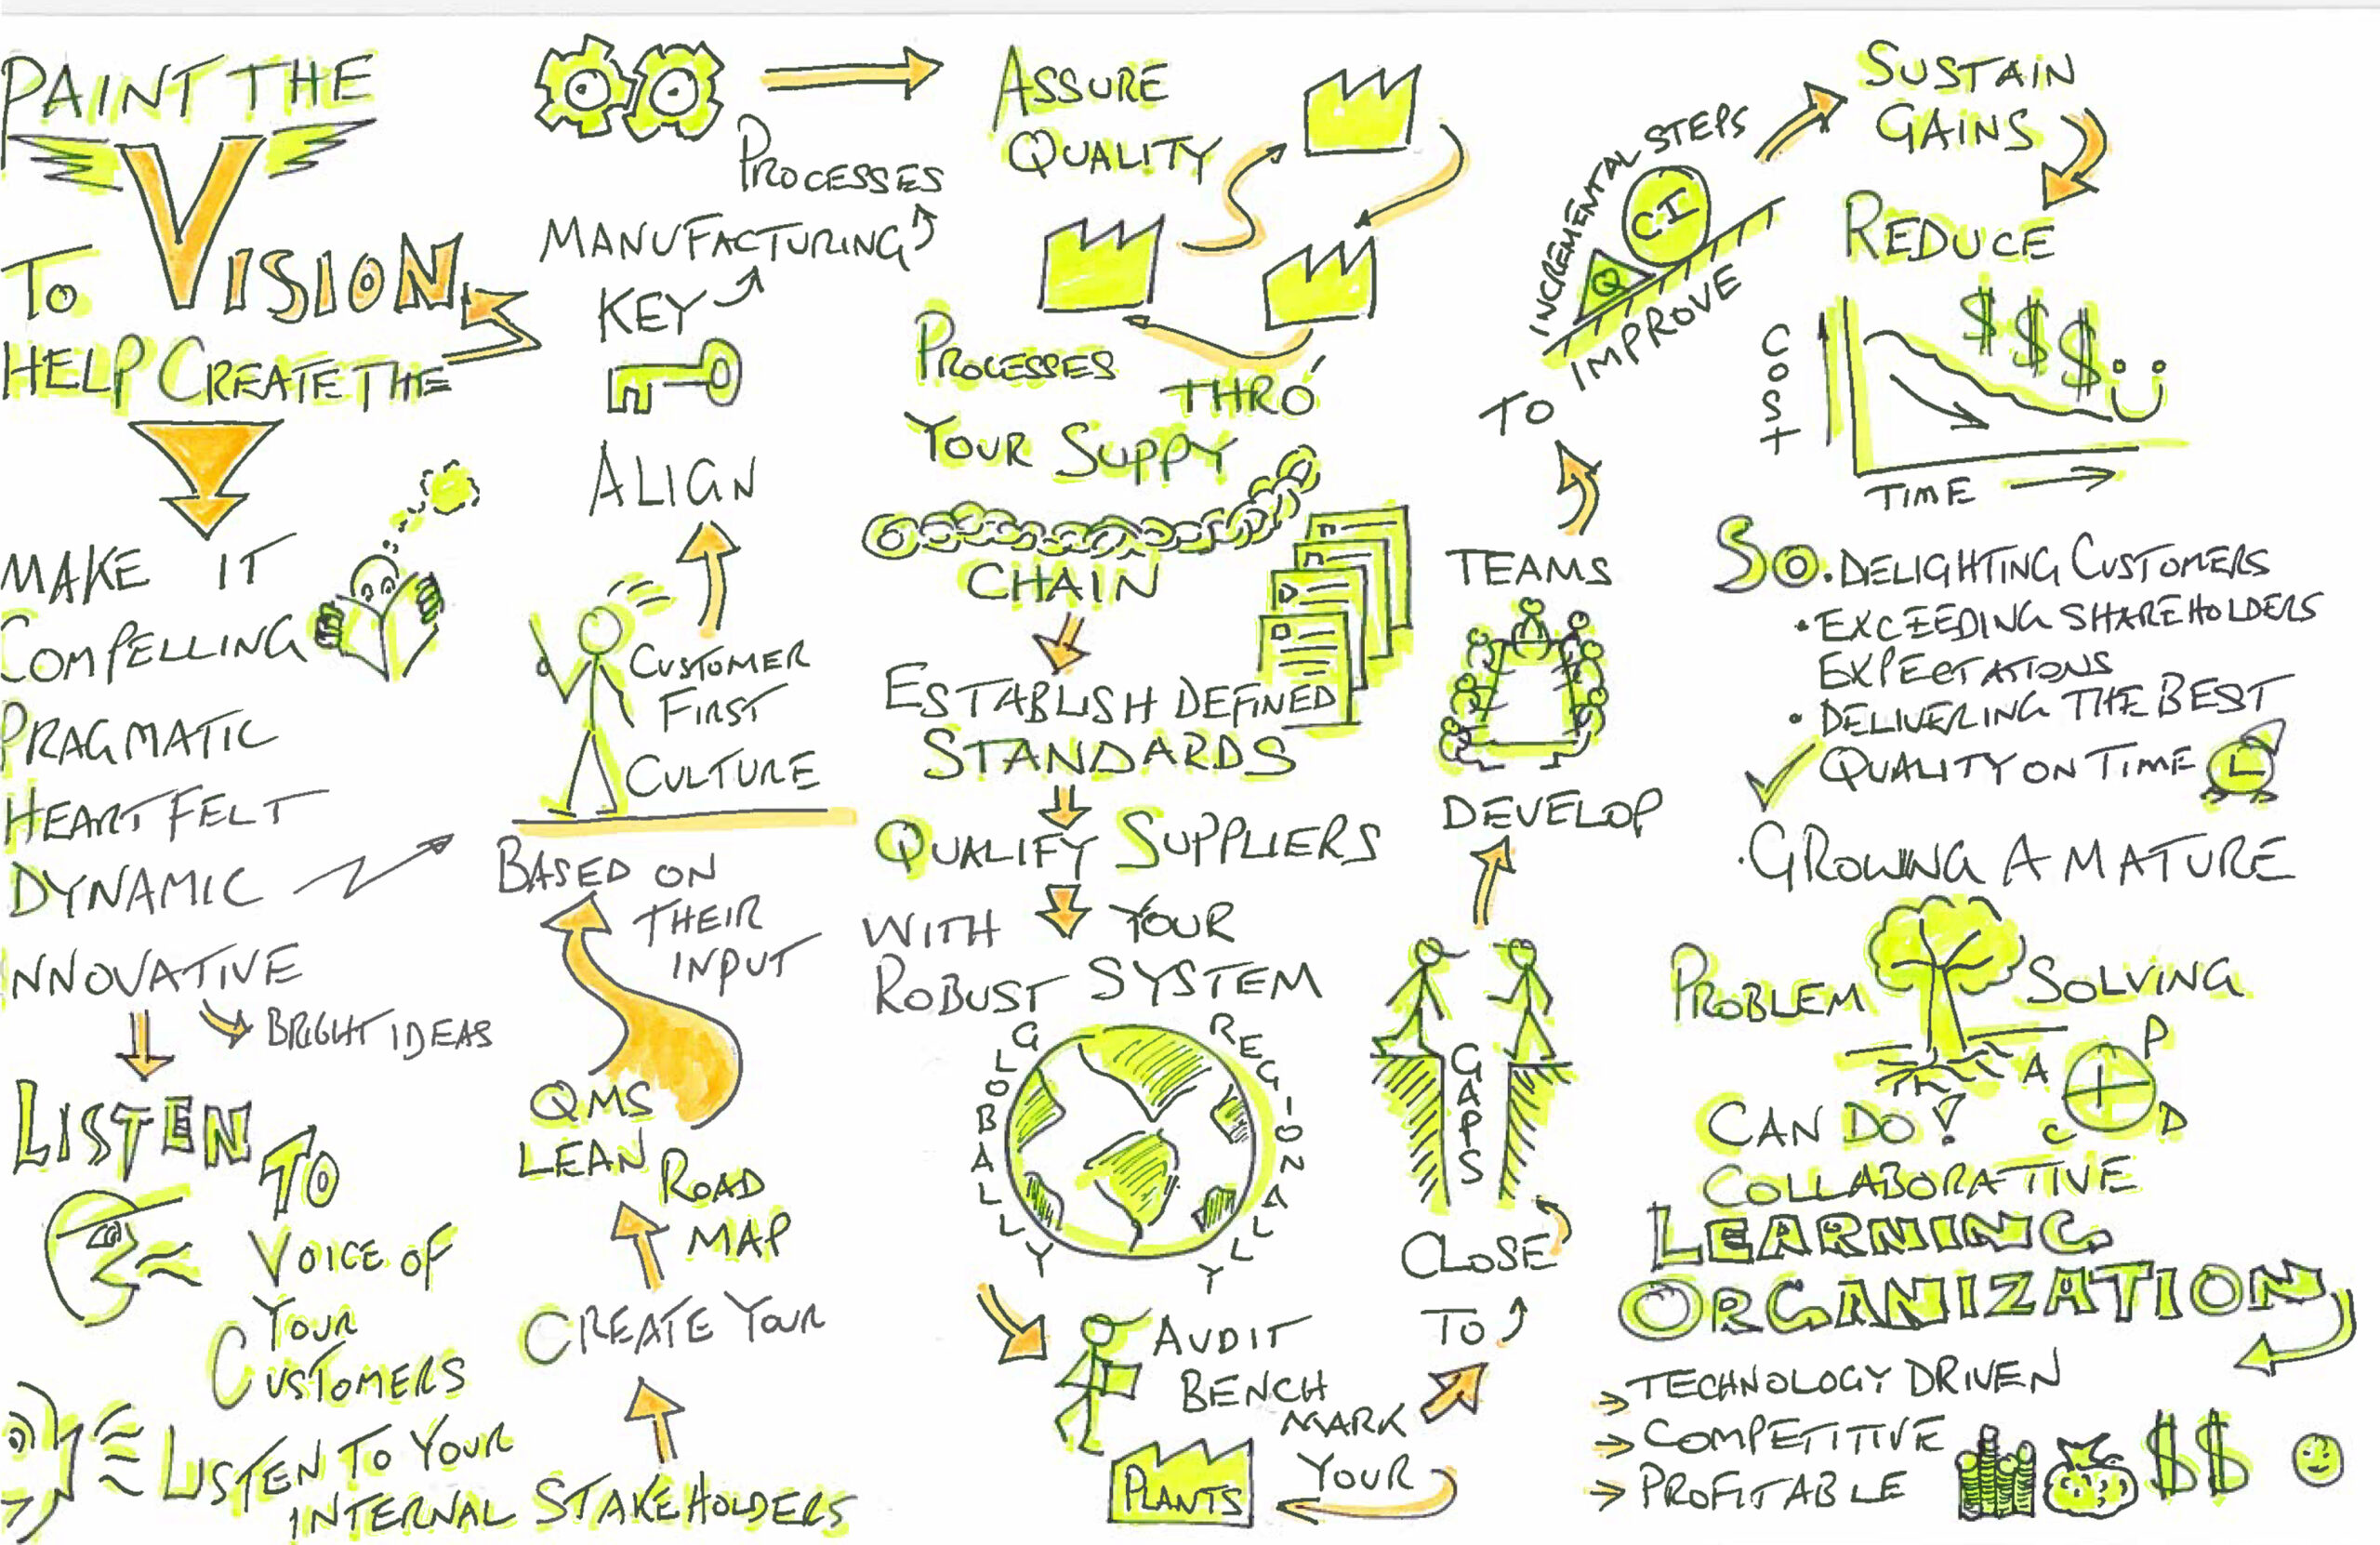 PAINT THE
VISION
TO
HELP CREATE THE
MAKE IT
COMPELLING
PRAGMATIC
HEARTFELT
DYNAMIC
INNOVATIVE
BRIGHT IDEAS
LISTEN
TO
VOICE OF
YOUR
CUSTOMERS
LISTEN TO YOUR
INTERNAL STAKEHOLDERS
CREATE YOUR
ROAD
MAP
QMS
LEAN
BASED ON
THEIR
INPUT
CUSTOMER
FIRST
CULTURE
ALIGN
KEY
MANUFACTURING
PROCESSES
ASSURE
QUALITY
PROCESSES
THRO'
YOUR SUPPY
CHAIN
ESTABLISH DEFINED
STANDARDS
QUALIFY SUPPLIERS
WITH YOUR
ROBUST SYSTEM
GLOBALLY
REGIONALLY
AUDIT
BENCH
MARK
YOUR
PLANTS
TO
CLOSE
GAPS
DEVELOP
TEAMS
TO
IMPROVE
INCREMENTAL STEPS
CI
Q
SUSTAIN
GAINS
REDUCE
COST
$$$
TIME
SO. DELIGHTING CUSTOMERS
• EXCEEDING SHAREHOLDERS
EXPECTATIONS
• DELIVERING THE BEST
QUALITY ON TIME
• GROWING A MATURE
PROBLEM SOLVING
A P
C D
CAN DO!
COLLABORATIVE
LEARNING
ORGANIZATION
→ TECHNOLOGY DRIVEN
→ COMPETITIVE
→ PROFITABLE
$$